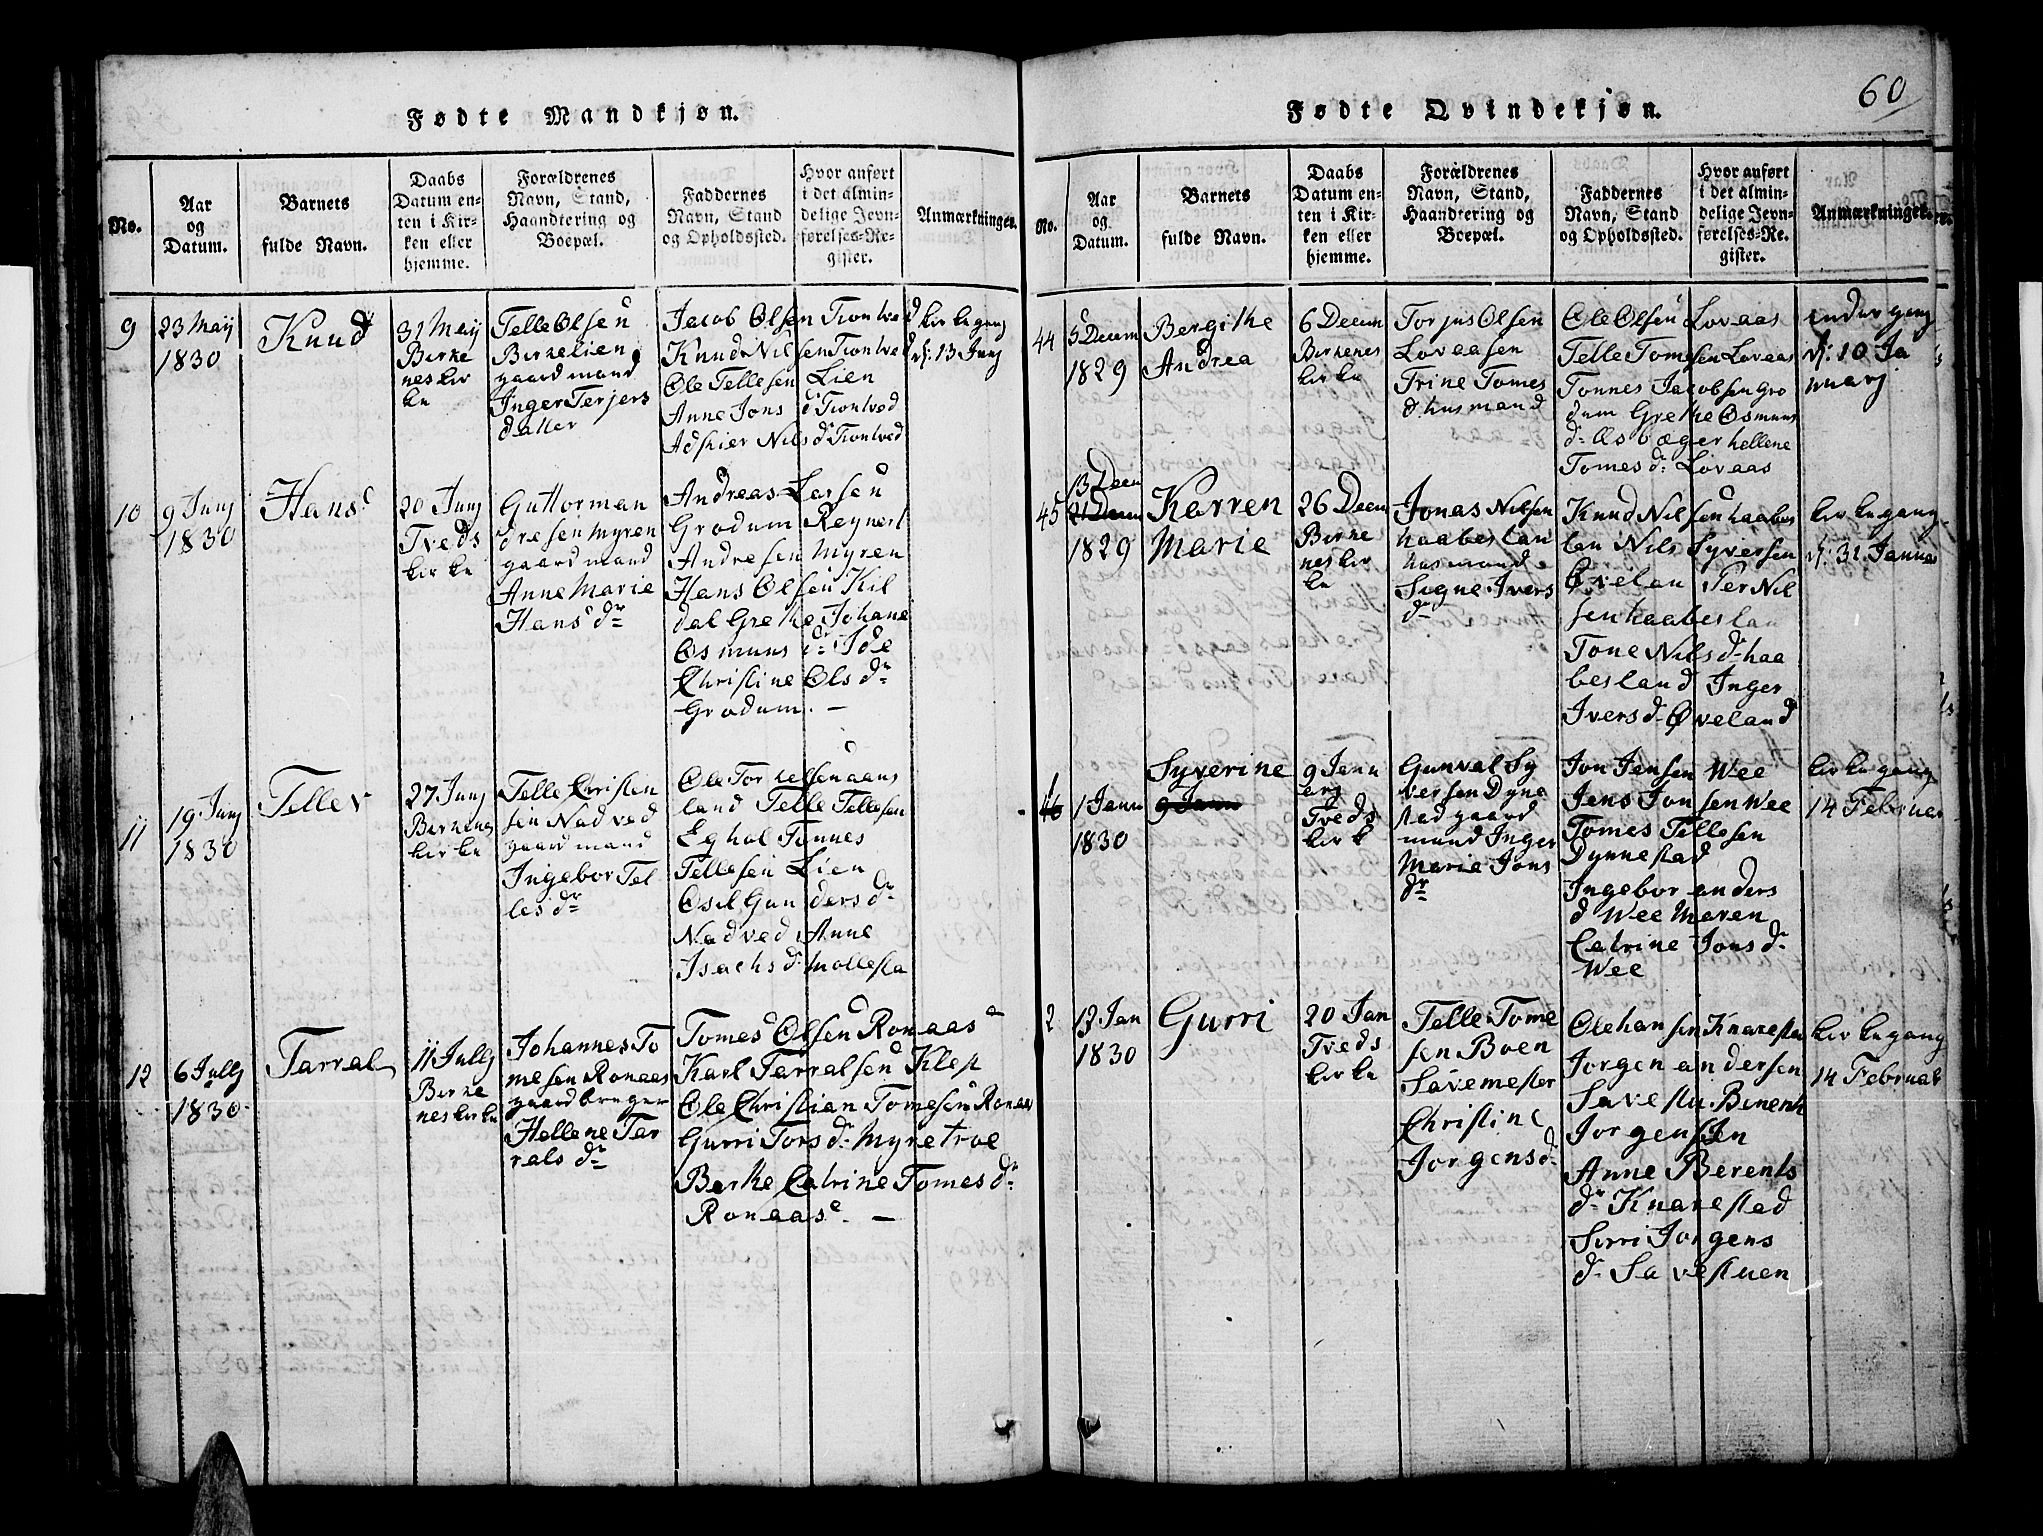 Fødte Mandkjøn.
No.
Aar
og
Datum.
Barnets
fulde Navn.
Daabs
Datum en-
ten i Kir-
ken eller
hjemme.
Forældrenes
Navn, Stand,
Haandtering og
Boepæl.
Faddernes
Navn, Stand
og Opholdssted.
Hvor anført
i det almin-
delige Jevn-
førelses-Re-
gister.
Anmærkninger.
9
23 Maij
1830
Knud
31 Maij
Birke
nes kir
ke
Telle Olsen
Birkelien
gaardmand
Inger Terjers
datter
Jacob Olsen Tiontved
Knud Nilsen Tiontved
Ole Tellesen Lien
Anne Jons d Tiontved
Adskier Nils d Tiontved
kirkegang
d: 13 Junj
10
9 Junj
1830
Hans
20 Junj
Tveds
kirke
Guttorman
dresen Myren
gaardmand
Anne Marie
Hans dr
Andreas Larsen
Grodum Reynert
Andresen Myren
Hans Olsen Kil
dal Grethe Johane
Osmuns d: Ide
Christine Ols dr
Grodum. —
11
19 Junj
1830
Tellev
27 Junj
Birkenes
kirke
Telle Christen
sen Nadved
gaardmand
Ingebor Tel
les dr
Ole Torkelsen aans
land Telle Tellesen
Eghol Tønnes
Tellesen Lien
Osil Gunders d:
Nadved Anne
Isachs d Mollesta
12
6 Julj
1830
Tarral
11 Julj
Birke
neskirke
Johannes To
mesen Ronaas
gaardbruger
Hellene Tar
rals dr
Tomes Olsen Ronaas
Karl Tarralsen Klep
Ole Christian Tomesen Ronaas
Gurri Tors dr Myretroe
Berthe Catrine Tomes dr
Ronaas. —
Fødte Qvindekjøn.
60
No.
Aar
og
Datum.
Barnets
fulde Navn.
Daabs
Datum en-
ten i Kir-
ken eller
hjemme.
Forældrenes
Navn, Stand,
Haandtering og
Boepæl.
Faddernes
Navn, Stand
og Opholdssted.
Hvor anført
i det almin-
delige Jevn-
førelses-Re-
gister.
Anmærkninger.
44
5 Decem
1829
Bergithe
Andrea
6 Decem
Birkenes
kirke
Torjus Olsen
Lovaasen
Trine Tomes
d husmand
Ole Olsen Lovaas
Telle Tomesen Lovaas
Tonnes Jacobsen Gro
dum Grethe Osmuns
d: Øsbøger hellene
Tomes d: Lovaas
d: 10 Ja
nuarj
45
13 Decem
21 Decem
1829
Karren
Marie
26 Decem
Birke
nes kir
ke
Jonas Nilsen
haabeslan
husmand
Signe Ivers
dr
Knud Nilsen haabes
lan Nils Syversen
Øvelan Per Nil
sen haabeslan
Tone Nils d: haa
besland Inger
Ivers d Øveland
kirkegang
d: 31 Januar
46
1 Janu
1830
Syverine
9 Janu
9 Janu
arj
Tveds
kirk
Gunval Sy
versen Dyne
stad gaard
mand Inger
Marie Jons
dr
Jon Jensen Wee
Jens Jonsen Wee
Tomes Tellesen
Dynnestad
Ingebor anders
d Wee Maren
Catrine Jons d:
Wee
kirkegang
14 Februar
2
12 Jan
1830
Gurri
20 Jan
Tveds
kirke
Telle Tome
sen Boen
Savemester
Christine
Jorgens d:
Ole hansen Knarestad
Jorgen andersen
Savestu Berent
Jorgensen
Anne Berents
dr Knarestad
Sirri Jorgens
d: Savestuen
kirkegang
14 Februar